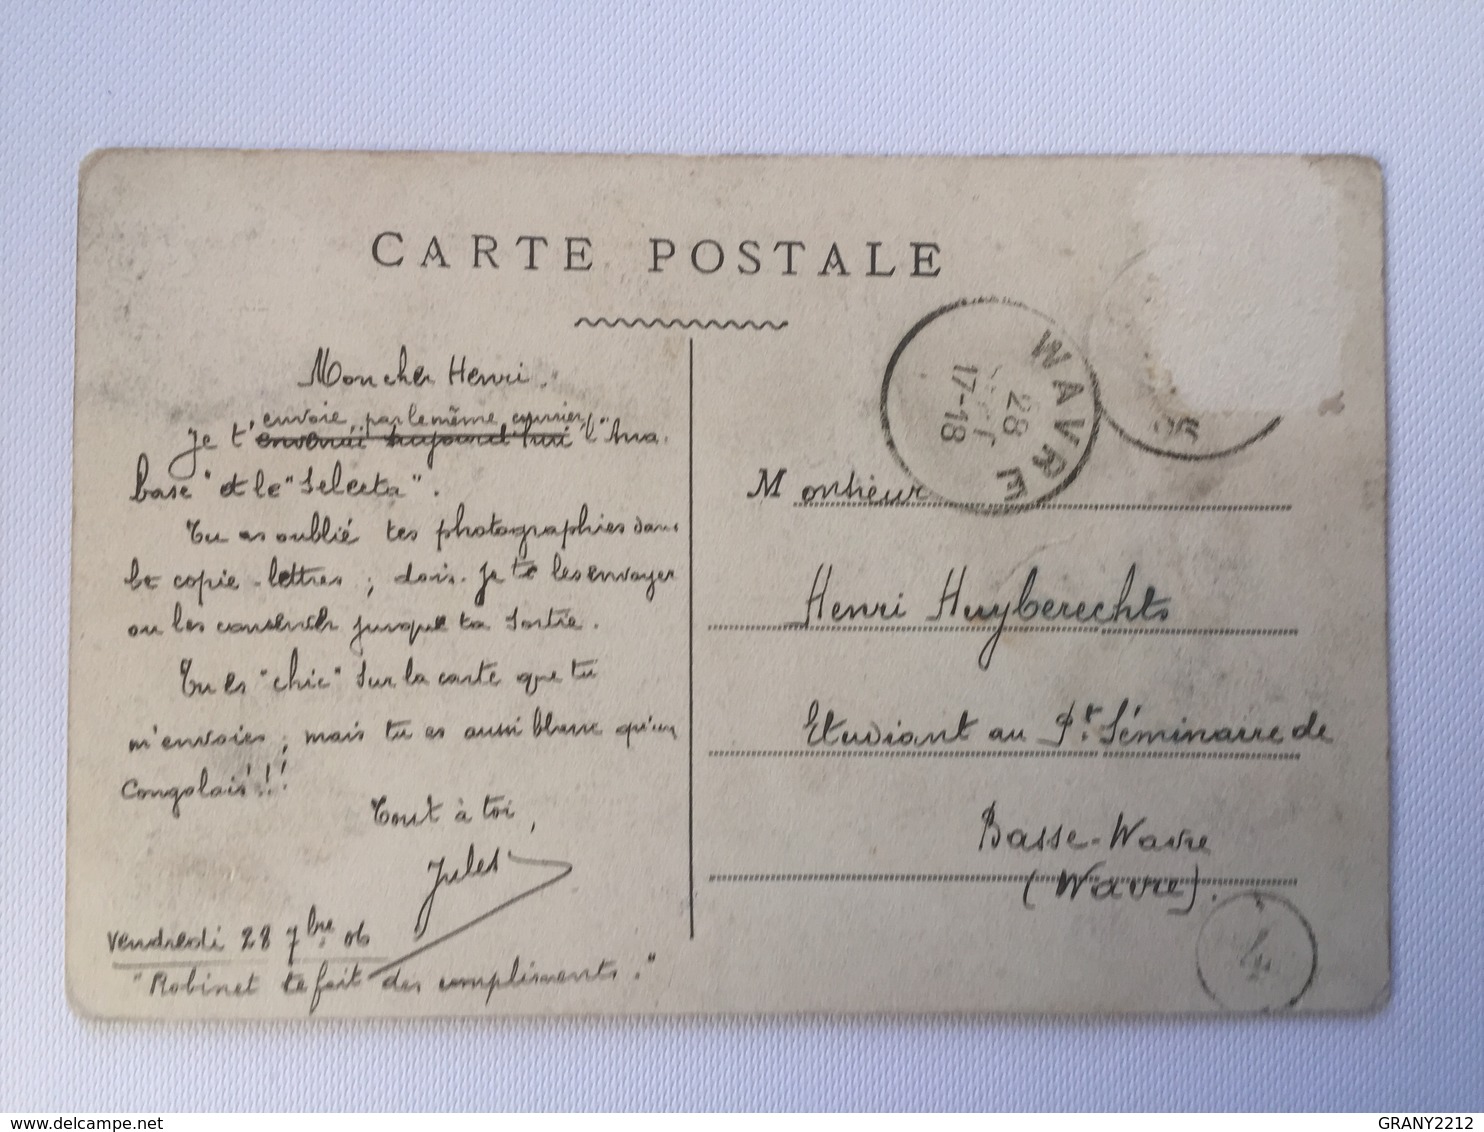 CARTE POSTALE
Mon cher Henri,
envoie, par le même courrier,
Je t' l' "Ana-
base" et le "Selecta".
Tu as oublié tes photographies dans
le copie-lettres ; dois-je te les envoyer
ou les conserver jusque ta sortie.
Tu es "chic" sur la carte que tu
m'envoies ; mais tu es aussi blanc qu'un
Congolais !!!
Tout à toi,
Jules
vendredi 28 7bre 06
"Robinet te fait des compliments."
WAVRE
28
17-18
Monsieur
Henri Huyberechts
Etudiant au Pt. Séminaire de
Basse-Wavre
(Wavre).
4
delcampe.net
GRANY2212